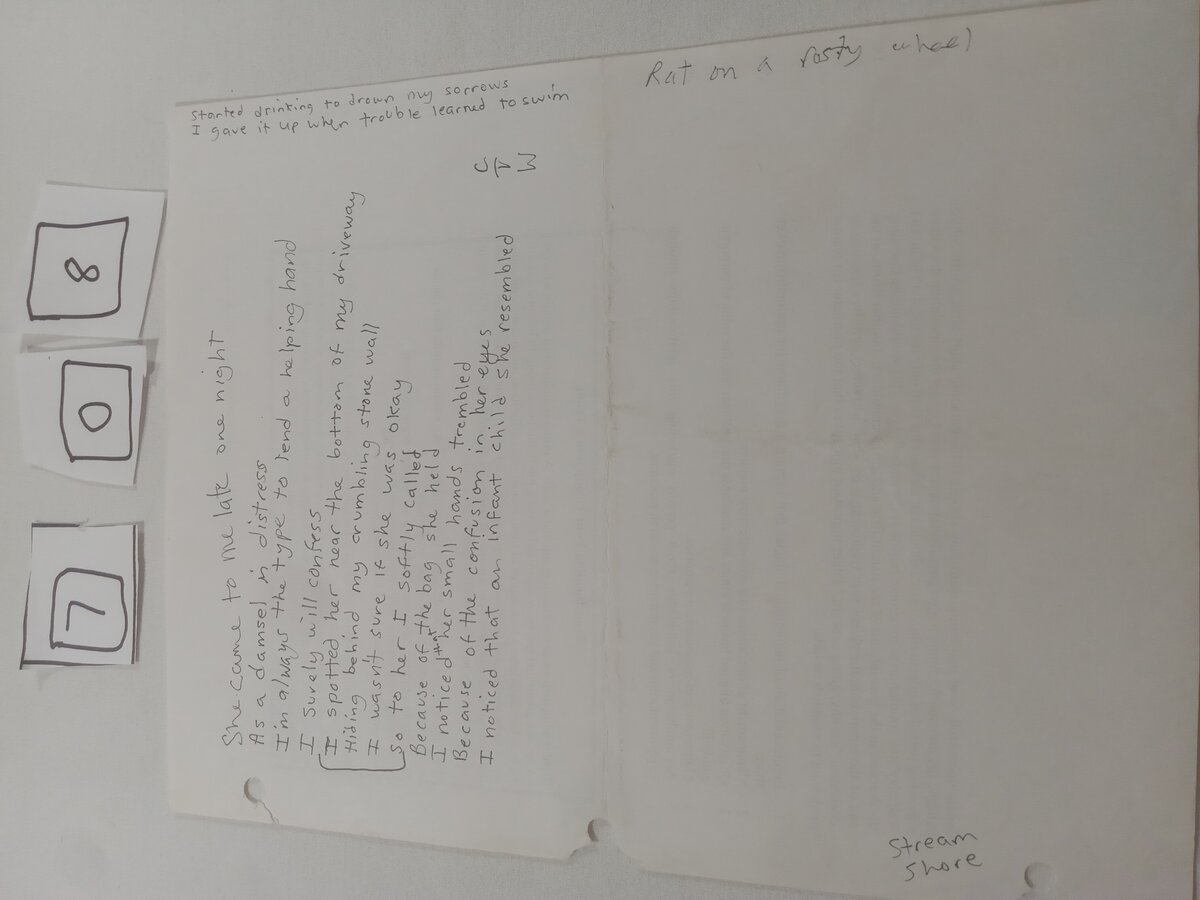 7 0 8
Started drinking to drown my sorrows
I gave it up when trouble learned to swim
Rat on a rosty wheel
She came to me late one night
As a damsel in distress
I'm always the type to lend a helping hand
I surely will confess
I spotted her near the bottom of my driveway
Hiding behind my crumbling stone wall
I wasn't sure if she was okay
So to her I softly called
Because of the bag she held
I noticed that her small hands trembled
Because of the confusion in her eyes
I noticed that an infant child she resembled
Stream
Shore